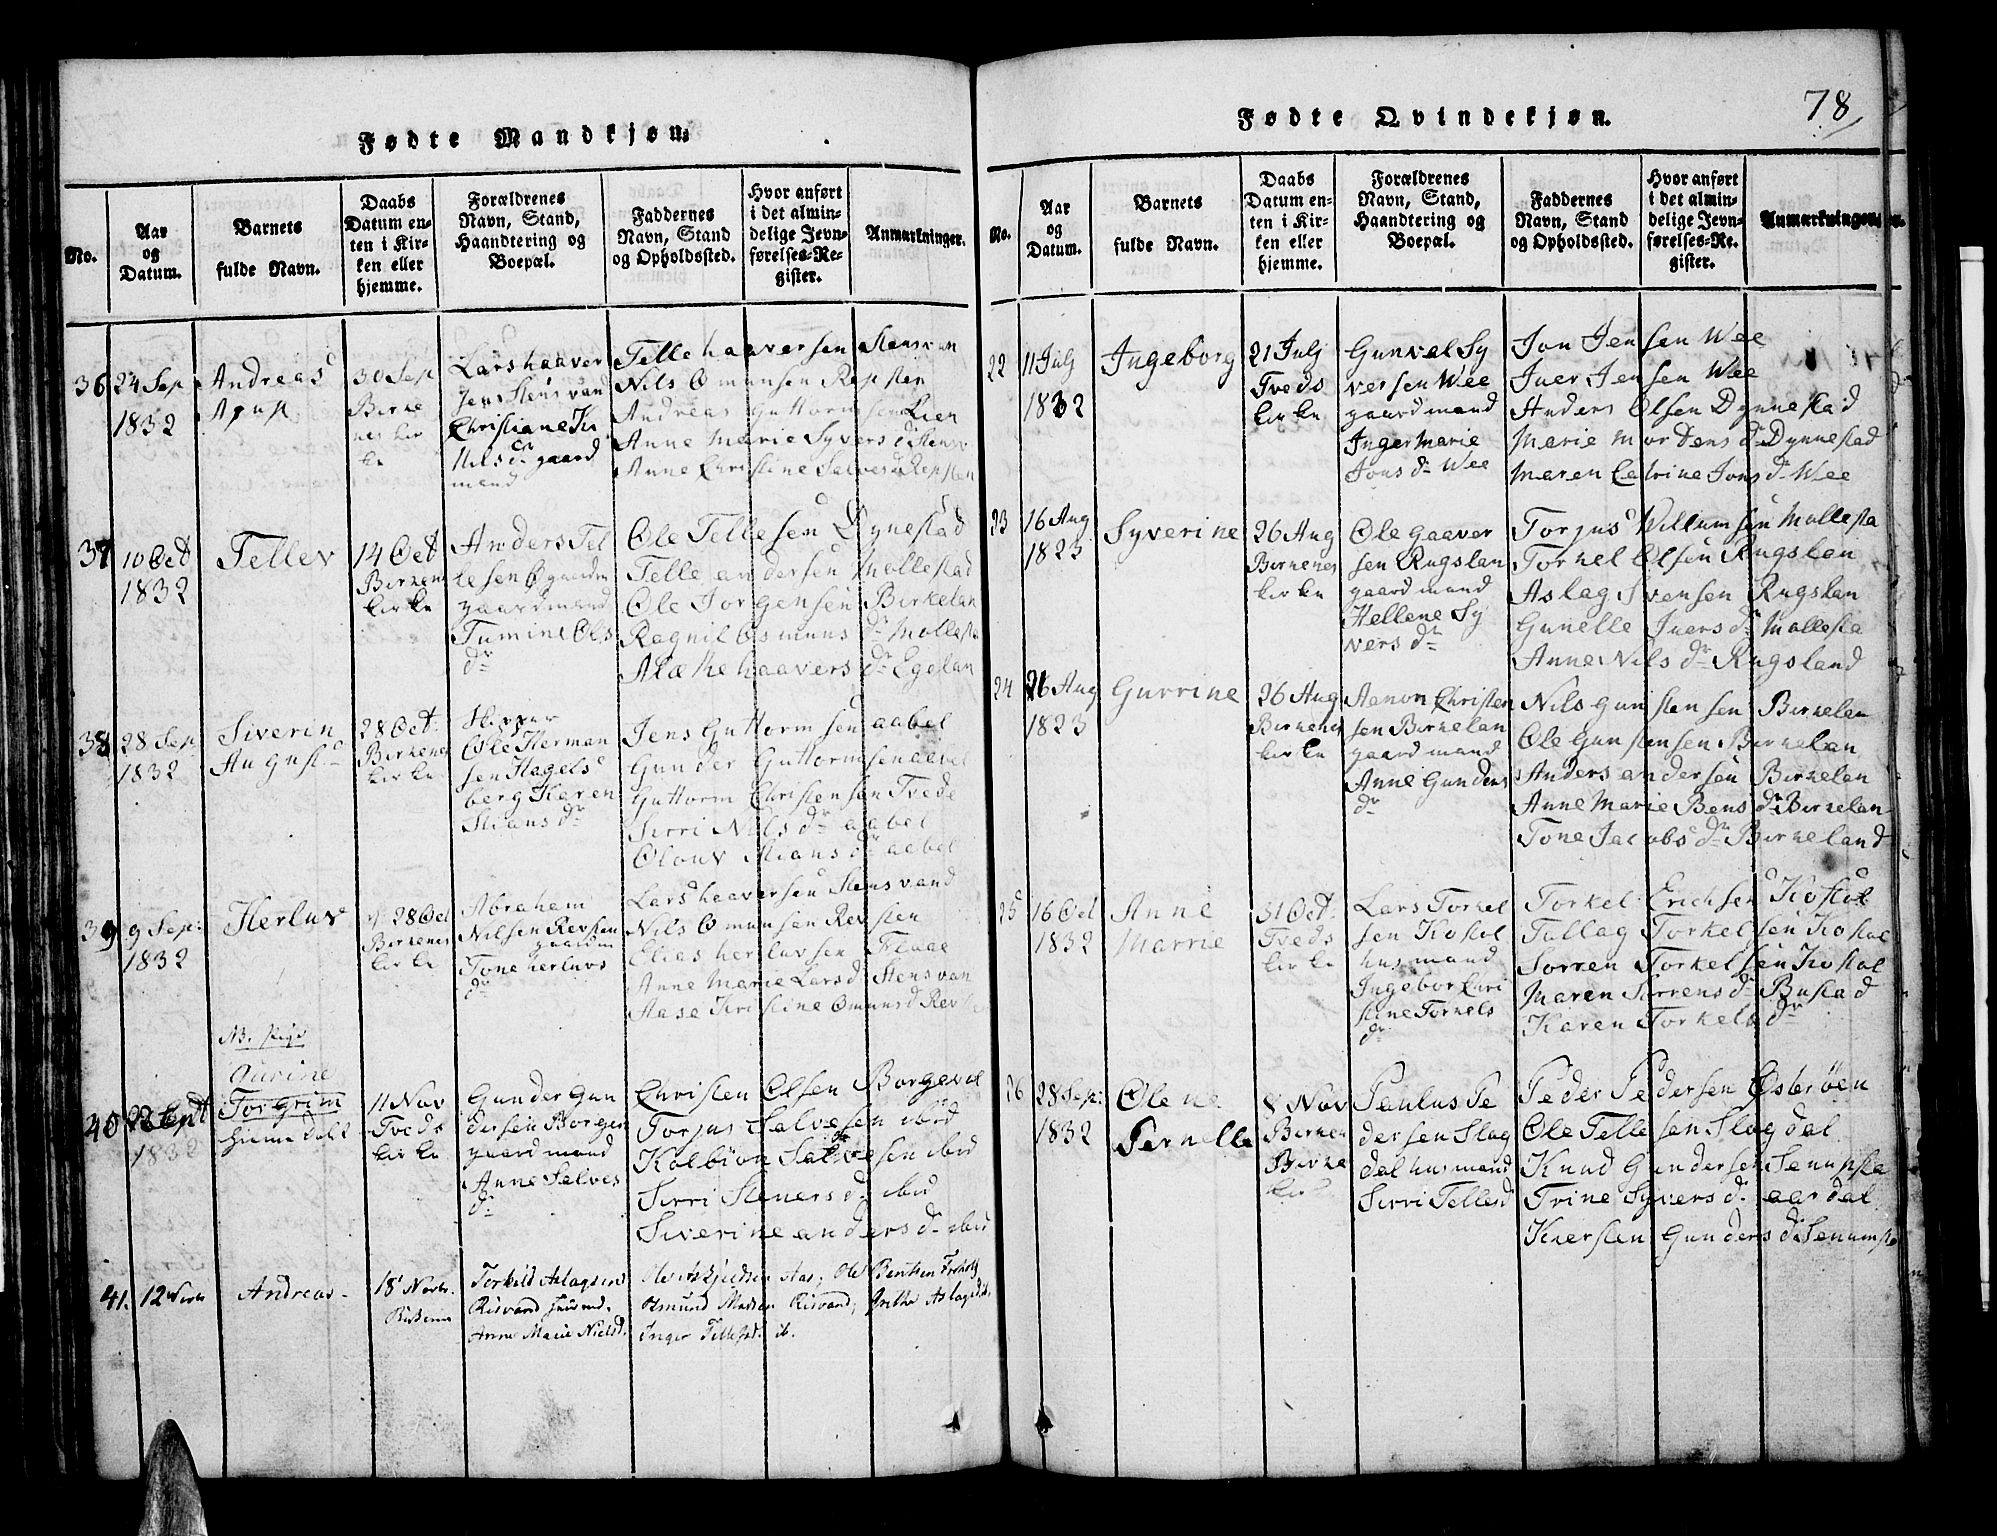 78
Fødte Mandkjøn.
No.
Aar
og
Datum.
Barnets
fulde Navn.
Daabs
Datum en-
ten i Kir-
ken eller
hjemme.
Forældrenes
Navn, Stand,
Haandtering og
Boepæl.
Faddernes
Navn, Stand
og Opholdssted.
Hvor anført
i det almin-
delige Jevn-
førelses-Re-
gister.
Anmærkninger.
36
24 Sep
1832
Andreas
30 Sep
Birke
nes kir
ke
Lars haaver
sen Stensvan
Christiane
Nils dr gaard
mand
Telle haaversen Stensvan
Nils Omunsen Repsten
Andreas Guttormsen Lien
Anne Marie Syvers dr Stensv
Anne Christine Salves dr Repsten
37
10 Oct
1832
Tellev
14 Oct
Birken
kirke
Anders Tel
lesen
gaardmand
Tumine Ols
dr
Ole Tellesen Dynestad
Telle andersen Mollestad
Ole Jorgensen Birkelan
Ragnil Osmuns dr Mollesta
Alæthe haavers dr Egelan
38
28 Sep
1832
Siverin
August
28 Oct.
Birkenes
kirke
Ole Herman
sen Hagels
berg Karen
Stians dr
Jens Guttormsen aabel
Gunder Guttormsen aabel
Guttorm Christensen Tvede
Sirri Nils dr aabel
Olouv Stians dr aabel
39
9 Sep:
1832
Herluv
28 Oct
Birkenes
kirke
Abraham
Nilsen Revsten
gaardm
Tone herluvs
dr
Lars haaversen Stensvand
Nils Omunsen Revsten
Elias herluvsen Flaae
Anne Marie Lars d Stensvan
Aase Kristine Omuns d Revst
40
22 Sept
1832
NB. pige
Gurine
Torgrim
hjemmedøbt
11 Nov
Tveds
kirke
Gunder Gun
dersen Borgev
gaardmand
Anne Salves
dr
Christen Olsen Borgevel
Torjus Salvesen ibid
Kolbiøn Salvesen ibid
Sirri Steners d ibid
Siverine anders d ibid
41.
12 Novbr
Andreas
18 Novbr.
Torkild Aslagsen
Risvand
Anne Marie Nielsd.
Ole Askjeldsen Aas; Ole Bentsen
Osmund Madsen Risvand; Aslagsd. ib.
Inger Tellefsd. ib.
Fødte Qvindekjøn.
No.
Aar
og
Datum.
Barnets
fulde Navn.
Daabs
Datum en-
ten i Kir-
ken eller
hjemme.
Forældrenes
Navn, Stand,
Haandtering og
Boepæl.
Faddernes
Navn, Stand
og Opholdssted.
Hvor anført
i det almin-
delige Jevn-
førelses-Re-
gister.
Anmærkninger.
22
11 Julj
1832
Ingeborg
21 Julj
Tveds
kirke
Gunvel Sy
versen Wee
gaardmand
Inger Marie
Jons dr Wee
Jon Jensen Wee
Juer Jensen Wee
Anders Olsen Dynnestad
Marie Mortens dr Dynnestad
Maren Catrine Jons dr Wee
23
16 Aug
1823
Syverine
26 Aug
Birkenes
kirke
Ole Gaaver
sen Rugslan
gaardmand
Hellene Sy
vers dr
Torjus Willumsen Mollesta
Torkel Olsen Rugslan
Aslag Svensen Rugslan
Gunelle Juers dr Mollesta
Anne Nils dr Rugsland
24
26 Aug
1823
Gurrine
26 Aug
Birkenes
kirke
Aanon Christen
sen Birkelan
gaardmand
Anne Gunders
dr
Nils Gunstensen Birkelan
Ole Gunstensen Birkelan
Anders andersen Birkelan
Anne Marie Bens dr Birkelan
Tone Jacobs dr Birkeland
25
16 Oct
1832
Anne
Marrie
31 Oct.
Tveds
kirke
Lars Torkel
sen Kostøl
husmand
Ingebor Chri
stine Torkels
dr
Torkel Erichsen Kostøl
Tallag Torkelsen Kostøl
Sørren Torkelsen Kostøl
Maren Sørrens dr Bustad
Karen Torkels dr
26
28 Sep:
1832
Olene
Pernelle
8 Nov
Birken
Birke
kir
Paulus Pe
dersen Slog
dal husmand
Sirri Telles d
Peder Pedersen Østerøen
Ole Tellesen Slogdal
Knud Gundersen Senumsta
Trine Syvers d aardal
Kiersten Gunders d Senumsta